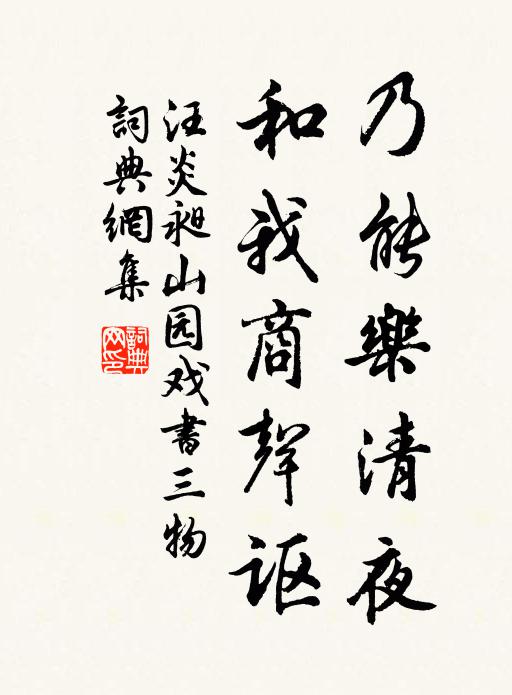 乃能樂清夜
和我商聲讴
汪炎昶山园戏書三物
詞典網集
詞典網印